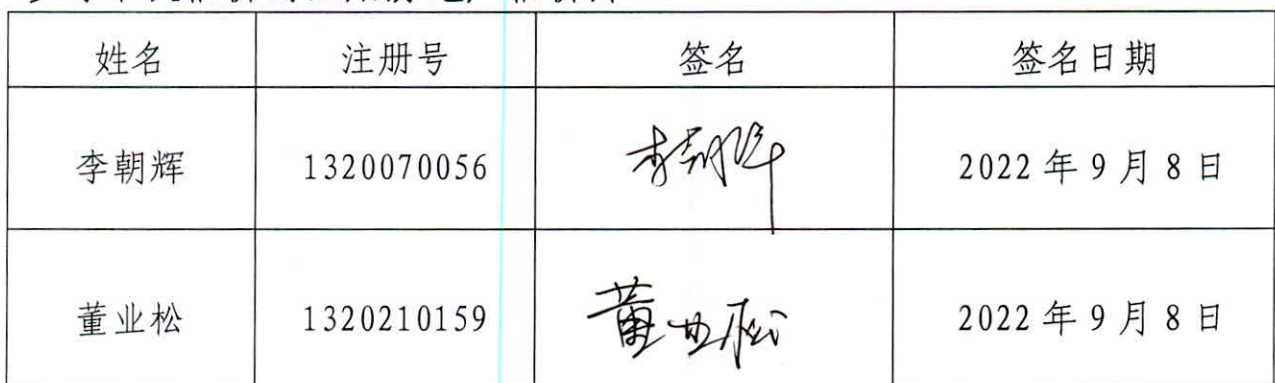 姓名 注册号 签名 签名日期
李朝辉 1320070056 李朝辉 2022年9月8日
董业松 1320210159 董业松 2022年9月8日